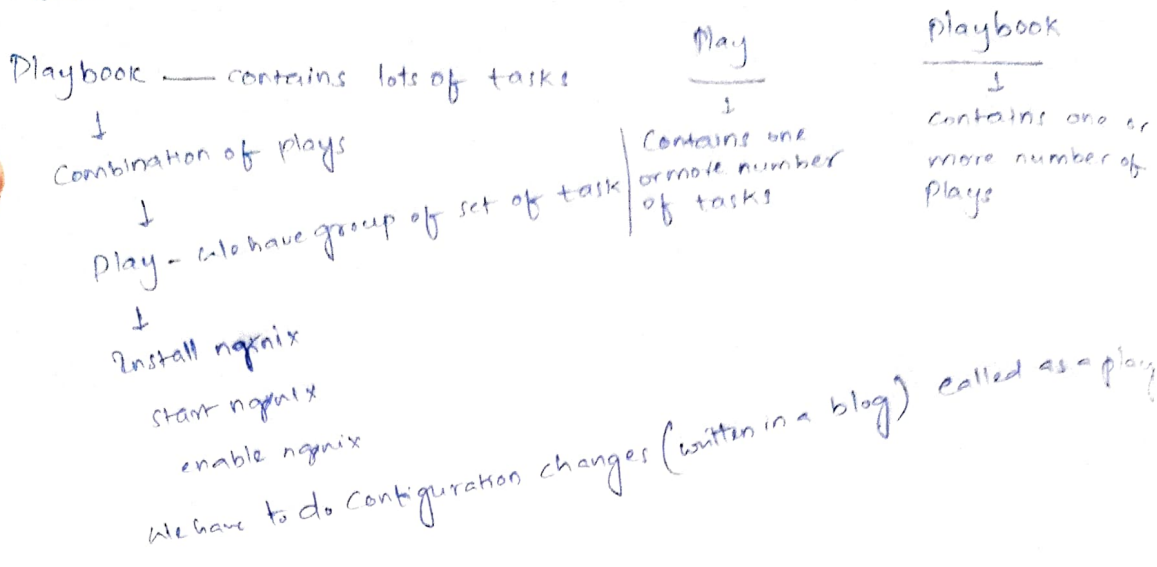 Playbook — contains lots of tasks
↓
Combination of plays
↓
Play - we have group of set of task
↓
Install nginix
start nginix
enable nginix
We have to do Configuration changes (written in a blog) called as a play
Play
↓
Contains one
or more number
of tasks
playbook
↓
Contains one or
more number of
Plays